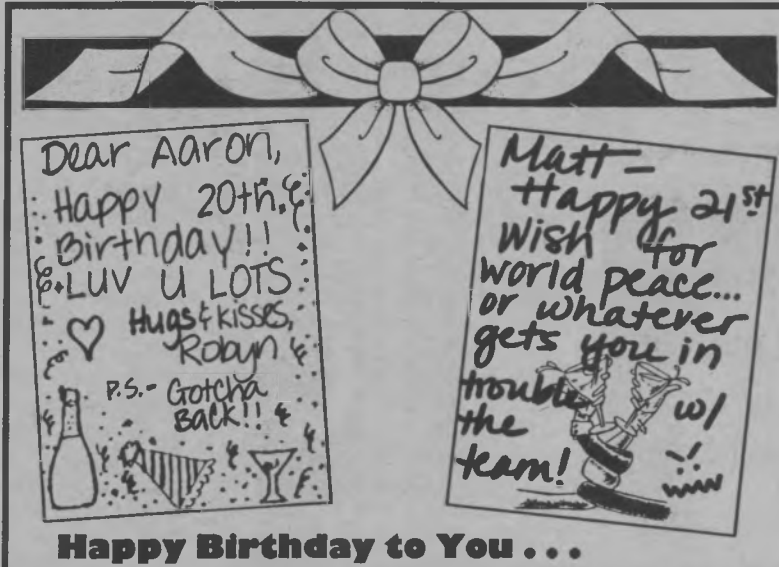 Dear Aaron,
Happy 20th
Birthday!!
LUV U LOTS
Hugs & kisses,
Robyn
P.S.- Gotcha
Back!!
Matt-
Happy 21st
Wish for
world peace...
or whatever
gets you in
trouble w/
the
team!
Happy Birthday to You . . .